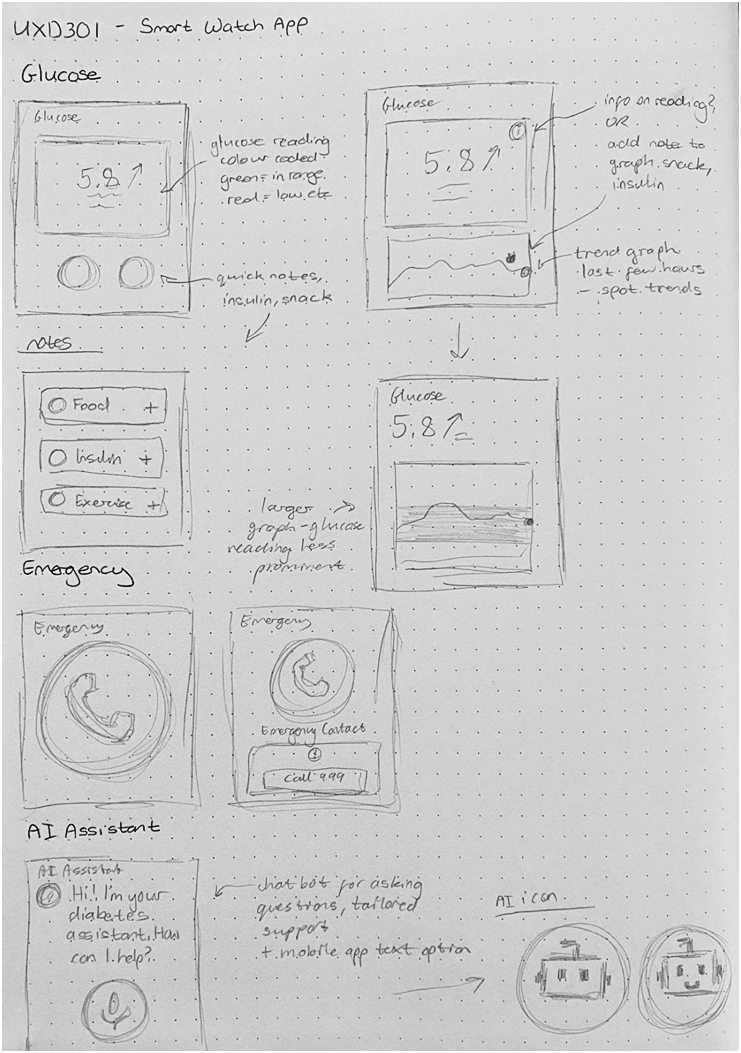 UXD301 - Smart Watch App
Glucose
Glucose
5.8↗
glucose reading
colour coded
green = in range
red = low etc
quick notes,
insulin, snack
Glucose
i
5.8↗
info on reading?
OR
add note to
graph. snack,
insulin
trend graph
last few hours
- spot trends
notes
Food +
Insulin +
Exercise +
Glucose
5.8↗
larger
graph - glucose
reading less
prominent
Emergency
Emergency
Emergency
Emergency Contact
Call 999
AI Assistant
AI Assistant
Hi! I'm your
diabetes
assistant. How
can I help?
chat bot for asking
questions, tailored
support
+ mobile app text option
AI icon